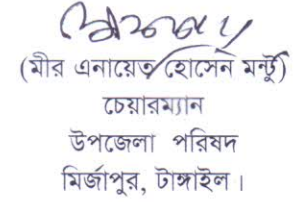 (মীর এনায়েত হোসেন মন্টু)
চেয়ারম্যান
উপজেলা পরিষদ
মির্জাপুর, টাঙ্গাইল।